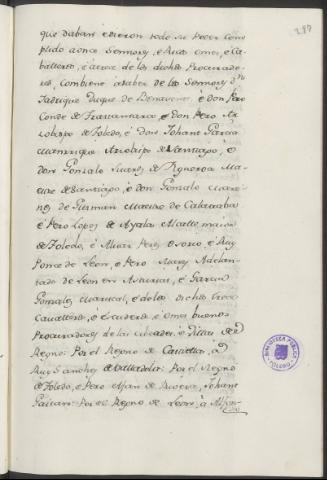 287
que daban e dieron todo su Poder Com
plido a once Sennores, e Ricos Omes, e Ca
balleros, e a trece de los dichos Procurado
res, Combiene a saber de los Sennores Dn
Fadrique Duque de Benavente, e don Pero
Conde de Trastamara, e Don Pero Ar
zobispo de Toledo, e Don Johant Garcia
Manrique Arzobispo de Santiago, e
don Gonzalo Nunez de Maes
tre de Santiago, e don Gonzalo Marti
nes de Gusman Maestre de Calatraba
e Pero Lopes de Ayala Alcalle maior
de Toledo, e Alvar Peres Osorio e Ruy
Ponce de Leon, e Pero Suares Adelan
tado de Leon en Asturias, e Garcia
Gonzales Mariscal, e de los dichos trece
Cavalleros, e Escuderos e Omes buenos
Procuradores de las Cibdades, e Villas de
Regno: Por el Regno de Castiella, a
Ruy Sanches de Valladolid: Por el Regno
de Toledo, a Pero Afan de Rivera, Johant
Gaitan: Por el Regno de Leon, a Alfon
BIBLIOTECA PUBLICA
TOLEDO